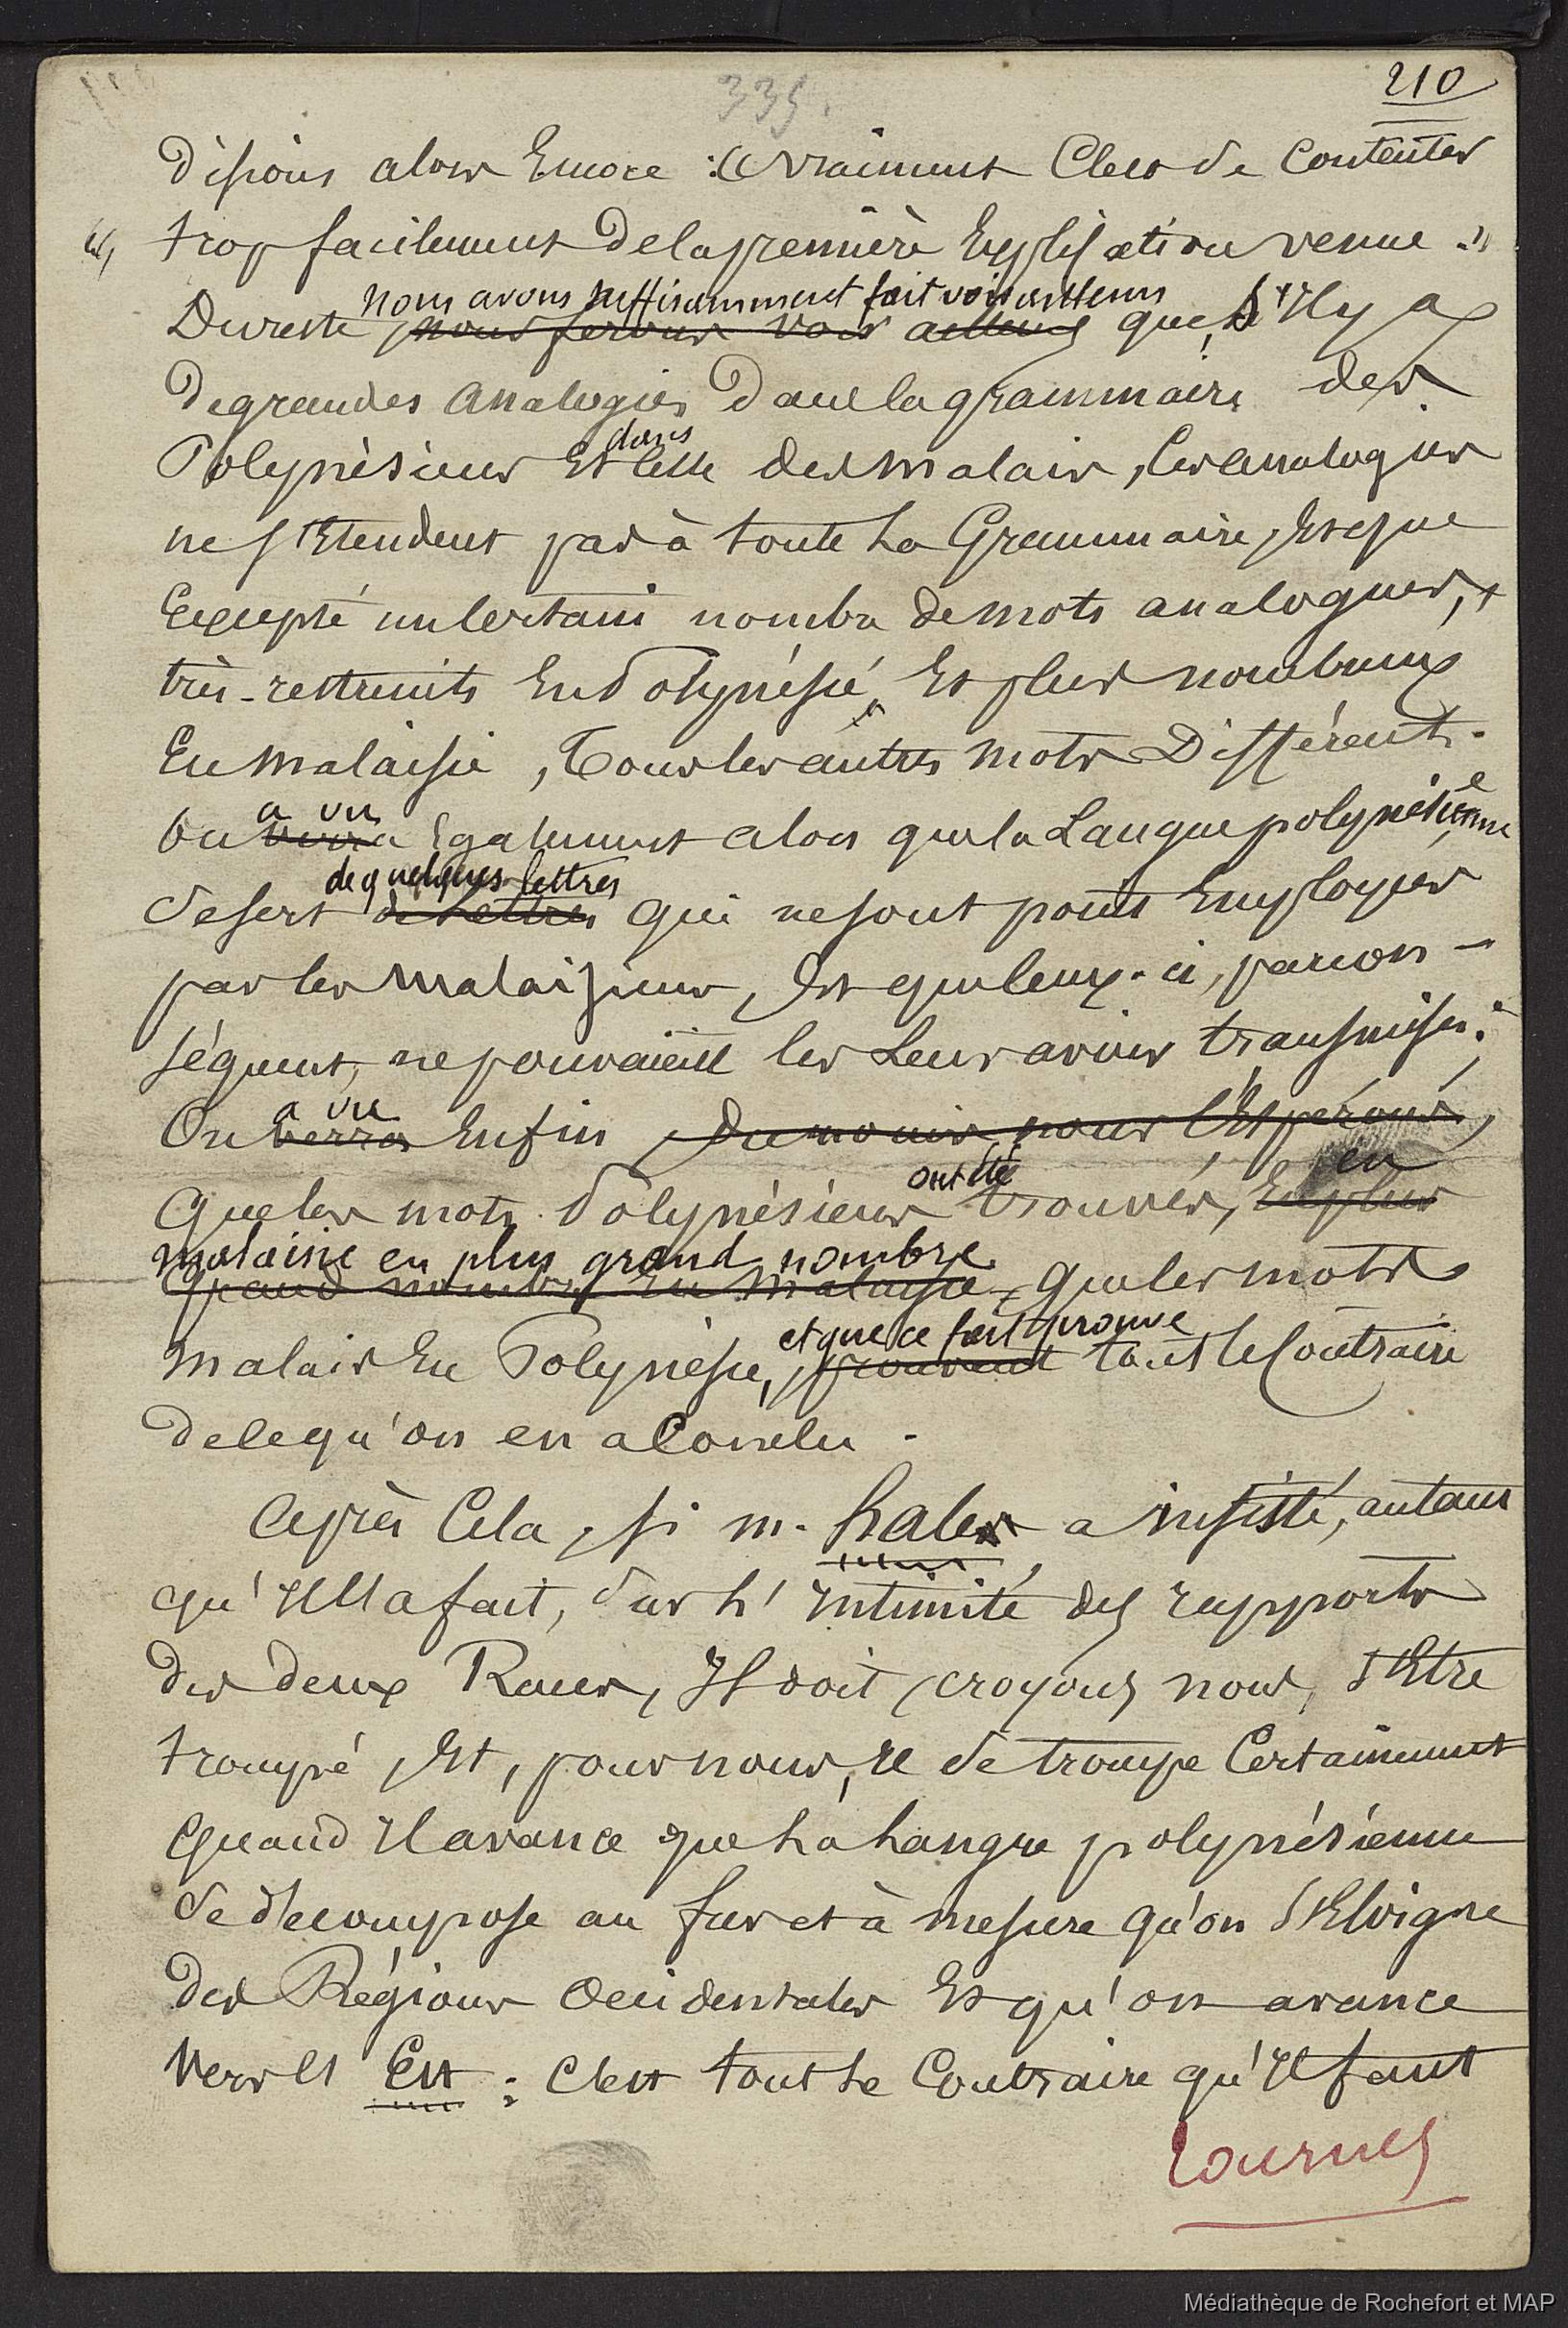 335.
210
disions alors Encore : « vraiment C'est se Contenter
« trop facilement de la première Explication venue. »
Du reste, nous avons suffisamment fait voir ailleurs
nous ferons voir ailleurs que, s'Il y a
de grandes Analogies dans la grammaire des
Polynésiens Et dans celle des malais, Ces analogies
ne s'Etendent pas à toute La Grammaire, Et que
Excepté un Certain nombre de mots analogues,
très-restreints En Polynésie, Et plus nombreux
En Malaisie, Tous les autres mots Diffèrent.
a vu
On verra Egalement alors que la Langue polynésienne
de quelques lettres
se sert de Lettres qui ne sont point Employées
par les Malaisiens, Et que Ceux-ci, par con-
séquent, ne pouvaient les Leur avoir transmises.
a vu
On verra Enfin, du moins nous l'Espérons,
ont été en
que les mots Polynésiens trouvés, En plus
malaisie en plus grand nombre
grand nombre En Malaisie, que les mots
et que ce fait prouve
malais En Polynésie, prouvent tout le Contraire
de ce qu'on en a Conclu.
Après Cela, si m. hales a insisté, autant
qu'Il l'a fait, sur L'Intimité des rapports
des deux Races, Il doit, croyons nous, s'Etre
trompé, Et, pour nous, Il se trompe Certainement
quand Il avance que La Langue polynésienne
se décompose au fur et à mesure qu'on s'Eloigne
des Régions Occidentales Et qu'on avance
vers l'Est : C'est tout Le Contraire qu'Il faut
tournez
Médiathèque de Rochefort et MAP